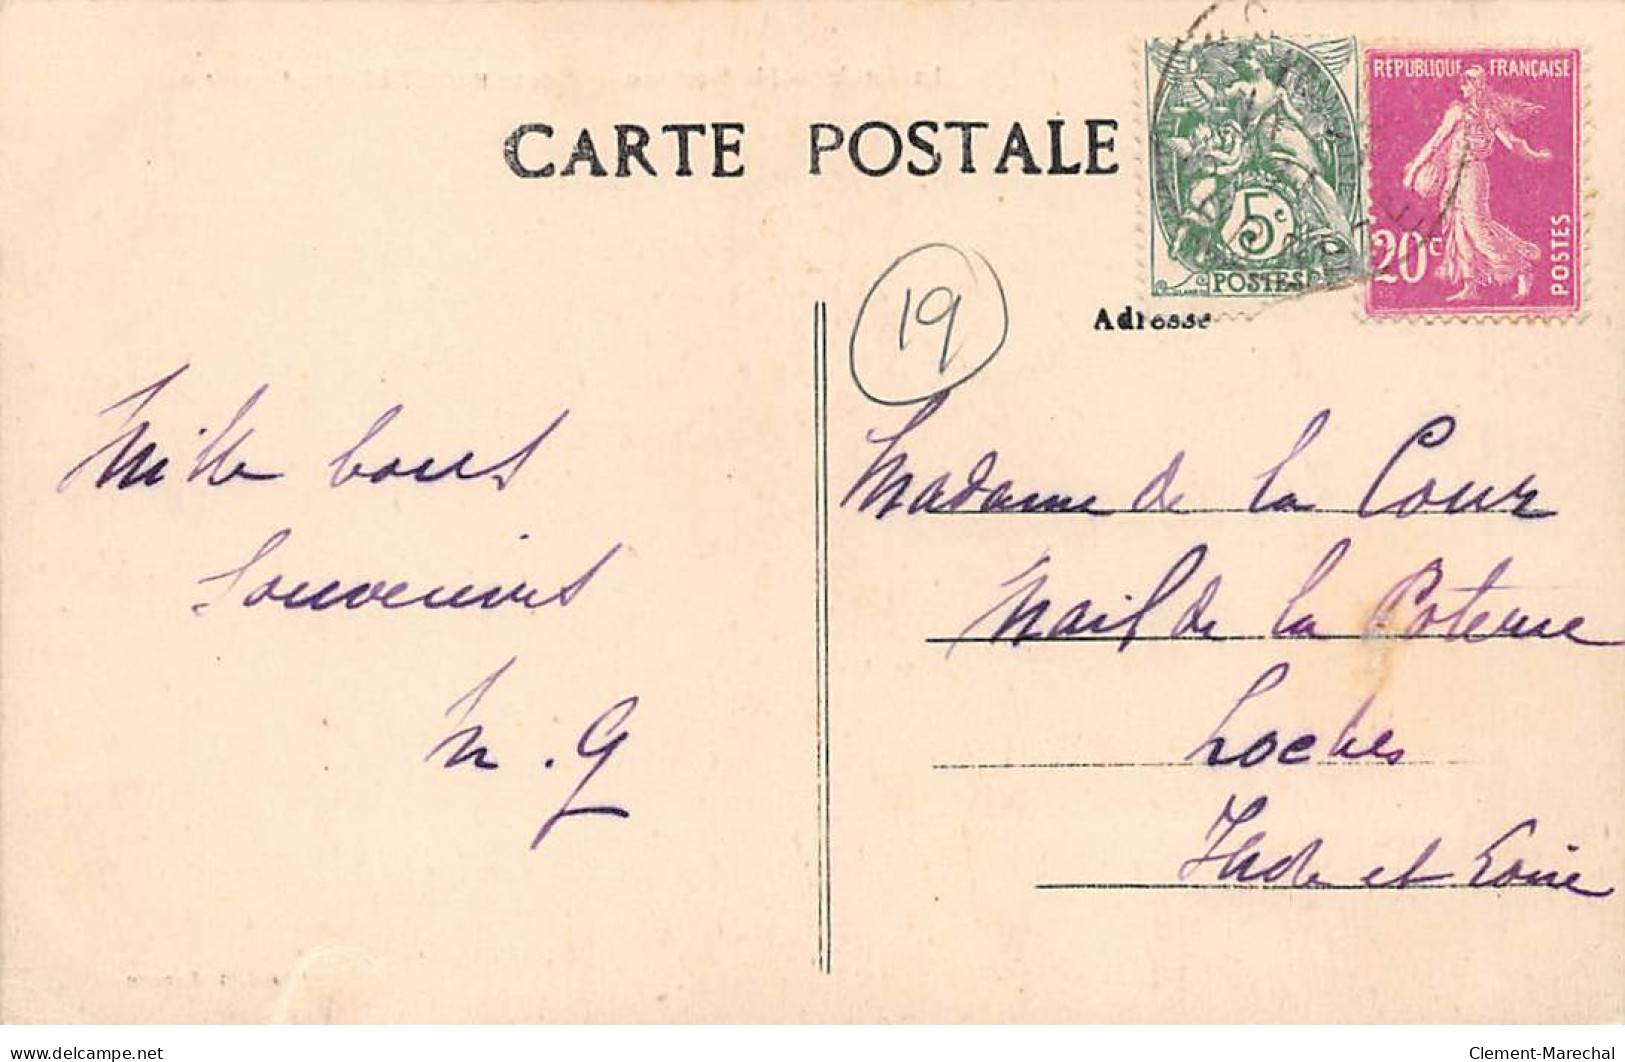 CARTE POSTALE
5c
POSTES
REPUBLIQUE FRANÇAISE
20c
POSTES
Adresse
19
Mille bons
Souvenirs
M. G
Madame de la Cour
Mail de la Poterne
Loches
Indre et Loire
delcampe.net
Clement-Marechal